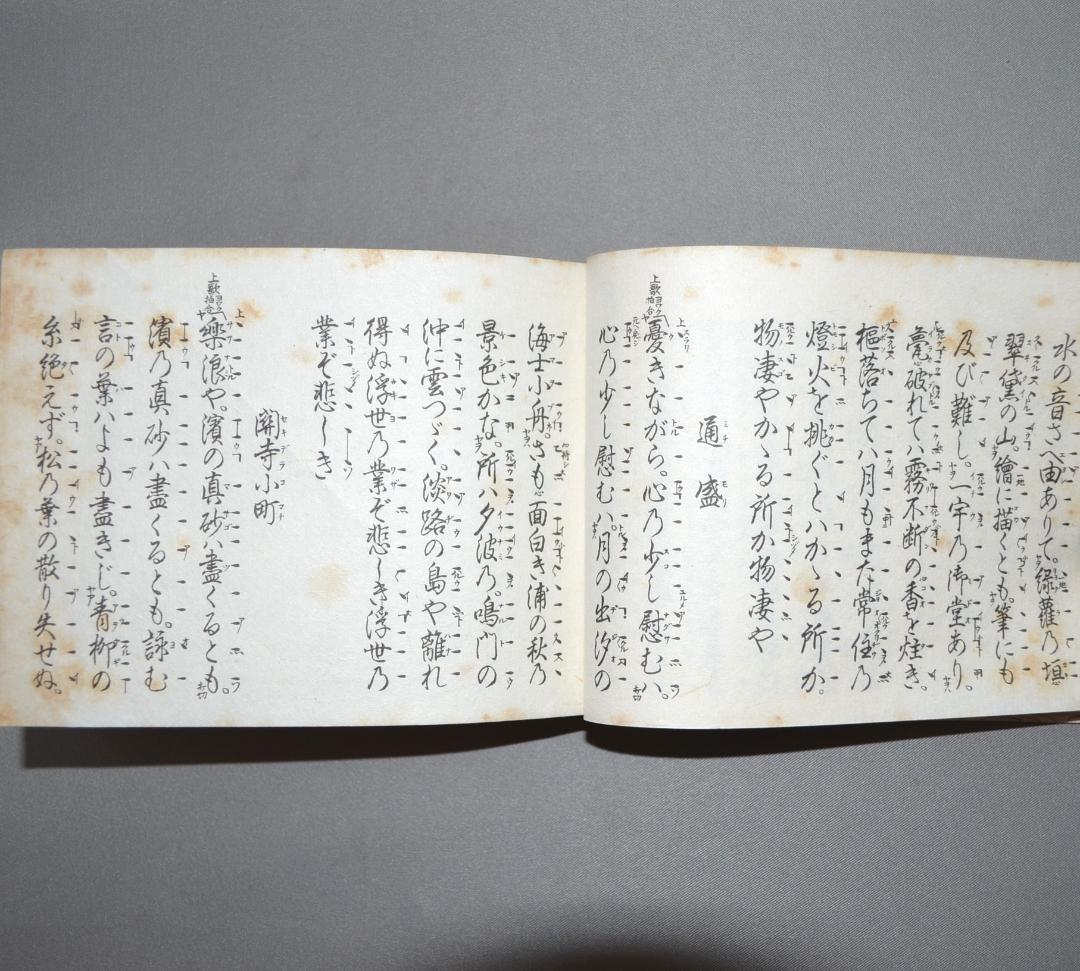 水の音さへ由ありて。緑蘿乃垣
翠黛の山。繪に描くとも。筆にも
及び難し。一宇乃御堂あり。
甍破れてハ霧不断の香を炷き。
樞落ちてハ月もまた常住乃
燈火を挑ぐとハかゝる所か。
物凄やかゝる所か物凄や
通盛
ミチモリ
上歌
ヨワク
拍合
上
スラリ
憂きながら。心乃少し慰むハ。
心乃少し慰むハ。月の出汐の
海士小舟。さも面白き浦の秋乃
景色かな。所ハ夕波乃。鳴門の
沖に雲つゞく。淡路の島や離れ
得ぬ浮世乃業ぞ悲しき浮世乃
業ぞ悲しき
關寺小町
セキデラコマチ
上歌
ヨワク
拍合
上
樂浪や。濱の真砂ハ盡くるとも。
濱乃真砂ハ盡くるとも。詠む
言の葉ハよも盡きじ。青柳の
糸絶えず。松乃葉の散り失せぬ。